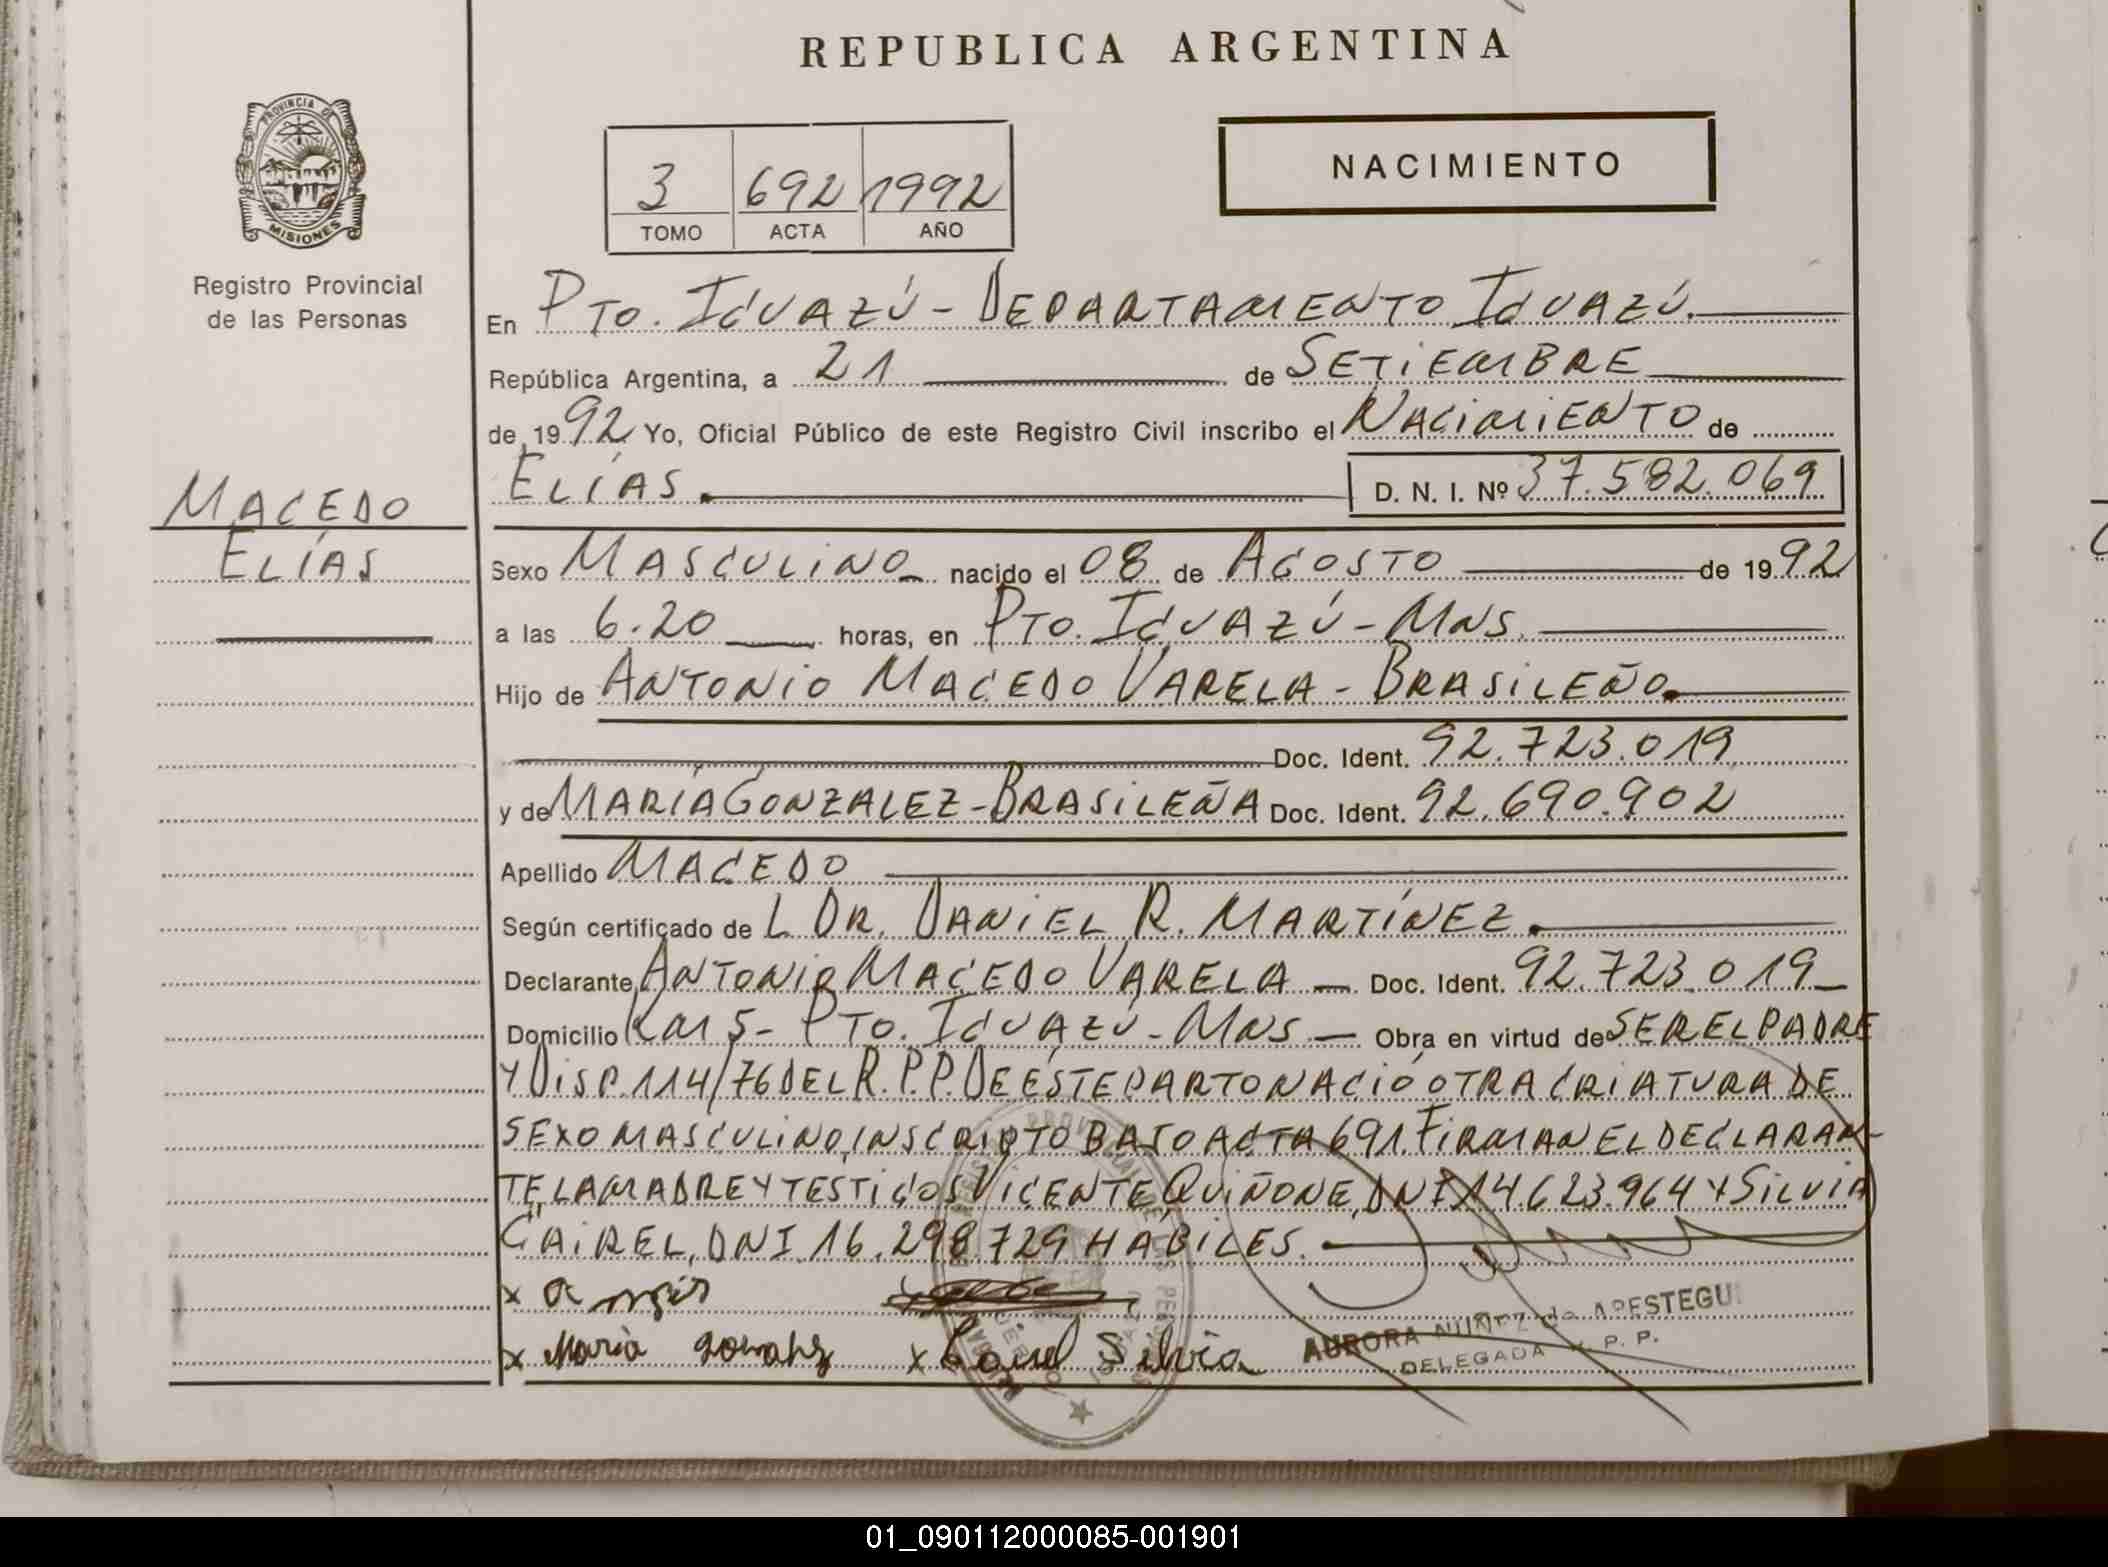 REPUBLICA ARGENTINA
PROVINCIA DE
MISIONES
Registro Provincial
de las Personas
3 692 1992
TOMO ACTA AÑO
NACIMIENTO
En PTO. IGUAZÚ - DEPARTAMENTO IGUAZÚ.
República Argentina, a 21 de SETIEMBRE
de 1992 Yo, Oficial Público de este Registro Civil inscribo el NACIMIENTO de
ELÍAS. D. N. I. Nº 37.582.069
MACEDO
ELÍAS
Sexo MASCULINO nacido el 08 de AGOSTO de 1992
a las 6.20 horas, en PTO. IGUAZÚ - MNS.
Hijo de ANTONIO MACEDO VARELA - BRASILEÑO.
Doc. Ident. 92.723.019
y de MARÍA GONZALEZ - BRASILEÑA Doc. Ident. 92.690.902
Apellido MACEDO
Según certificado de L DR. DANIEL R. MARTÍNEZ.
Declarante ANTONIO MACEDO VARELA Doc. Ident. 92.723.019
Domicilio KM 5 - PTO. IGUAZÚ - MNS Obra en virtud de SER EL PADRE
Y DISP. 114/76 DEL R.P.P. DE ÉSTE PARTO NACIÓ OTRA CRIATURA DE
SEXO MASCULINO, INSCRIPTO BAJO ACTA 691. FIRMAN EL DECLARAN-
TE LA MADRE Y TESTIGOS VICENTE QUIÑONE, DNI 14.623.964 Y SILVIA
CAIREL, DNI 16.298.729 HABILES.
x
x María x Silvia
AURORA NUÑEZ de APESTEGUI
DELEGADA R. P. P.
01_090112000085-001901